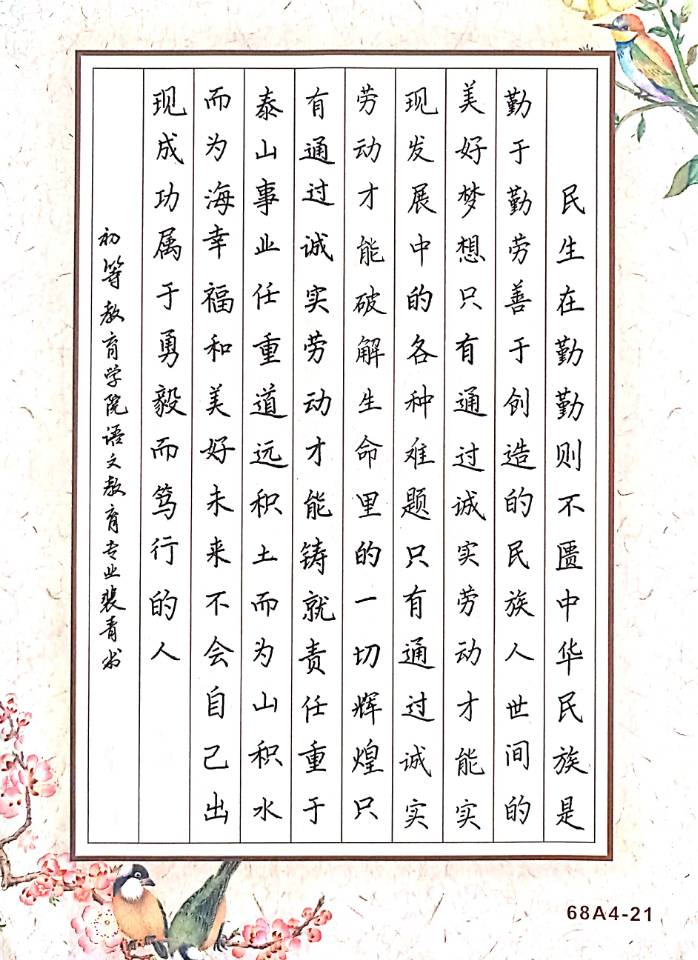 民生在勤勤则不匮中华民族是
勤于勤劳善于创造的民族人世间的
美好梦想只有通过诚实劳动才能实
现发展中的各种难题只有通过诚实
劳动才能破解生命里的一切辉煌只
有通过诚实劳动才能铸就责任重于
泰山事业任重道远积土而为山积水
而为海幸福和美好未来不会自己出
现成功属于勇毅而笃行的人
初等教育学院语文教育专业裴青书
68A4-21